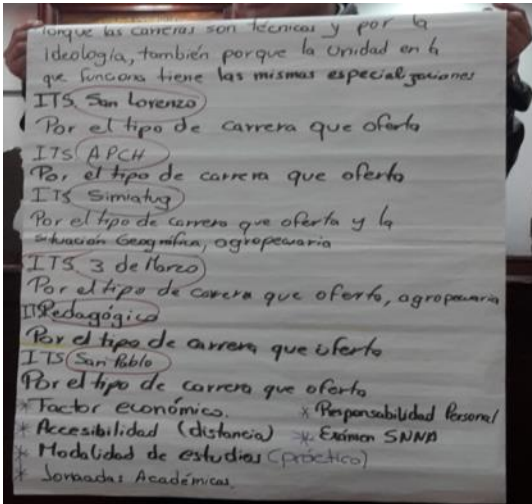 Porque las carreras son técnicas y por la
ideología, también porque la Unidad en la
que funciona tiene las mismas especializaciones
ITS. San Lorenzo
Por el tipo de carrera que oferta
ITS APCH
Por el tipo de carrera que oferta
ITS Simiatug
Por el tipo de carrera que oferta y la
situación Geográfica, agropecuaria
ITS. 3 de Marzo
Por el tipo de carrera que oferta, agropecuaria
ITS Pedagógico
Por el tipo de carrera que oferta
ITS San Pablo
Por el tipo de carrera que oferta
* Factor económico. * Responsabilidad Personal
* Accesibilidad (distancia) * Exámen SNNA
* Modalidad de estudios (práctico)
* Jornadas Académicas.